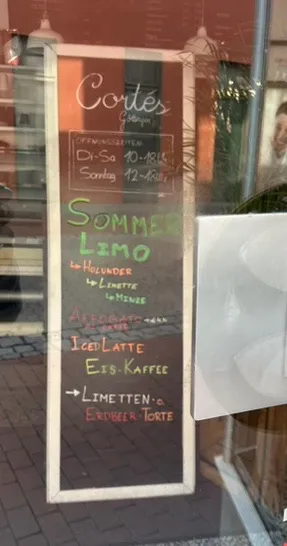 Cortés
Göttingen
ÖFFNUNGSZEITEN
Di-Sa 10-18Uhr
Sonntag 12-18Uhr
SOMMER
LIMO
↳ HOLUNDER
↳ LIMETTE
↳ MINZE
AFFOGATO
ICED LATTE
EIS-KAFFEE
→ LIMETTEN- o.
ERDBEER-TORTE